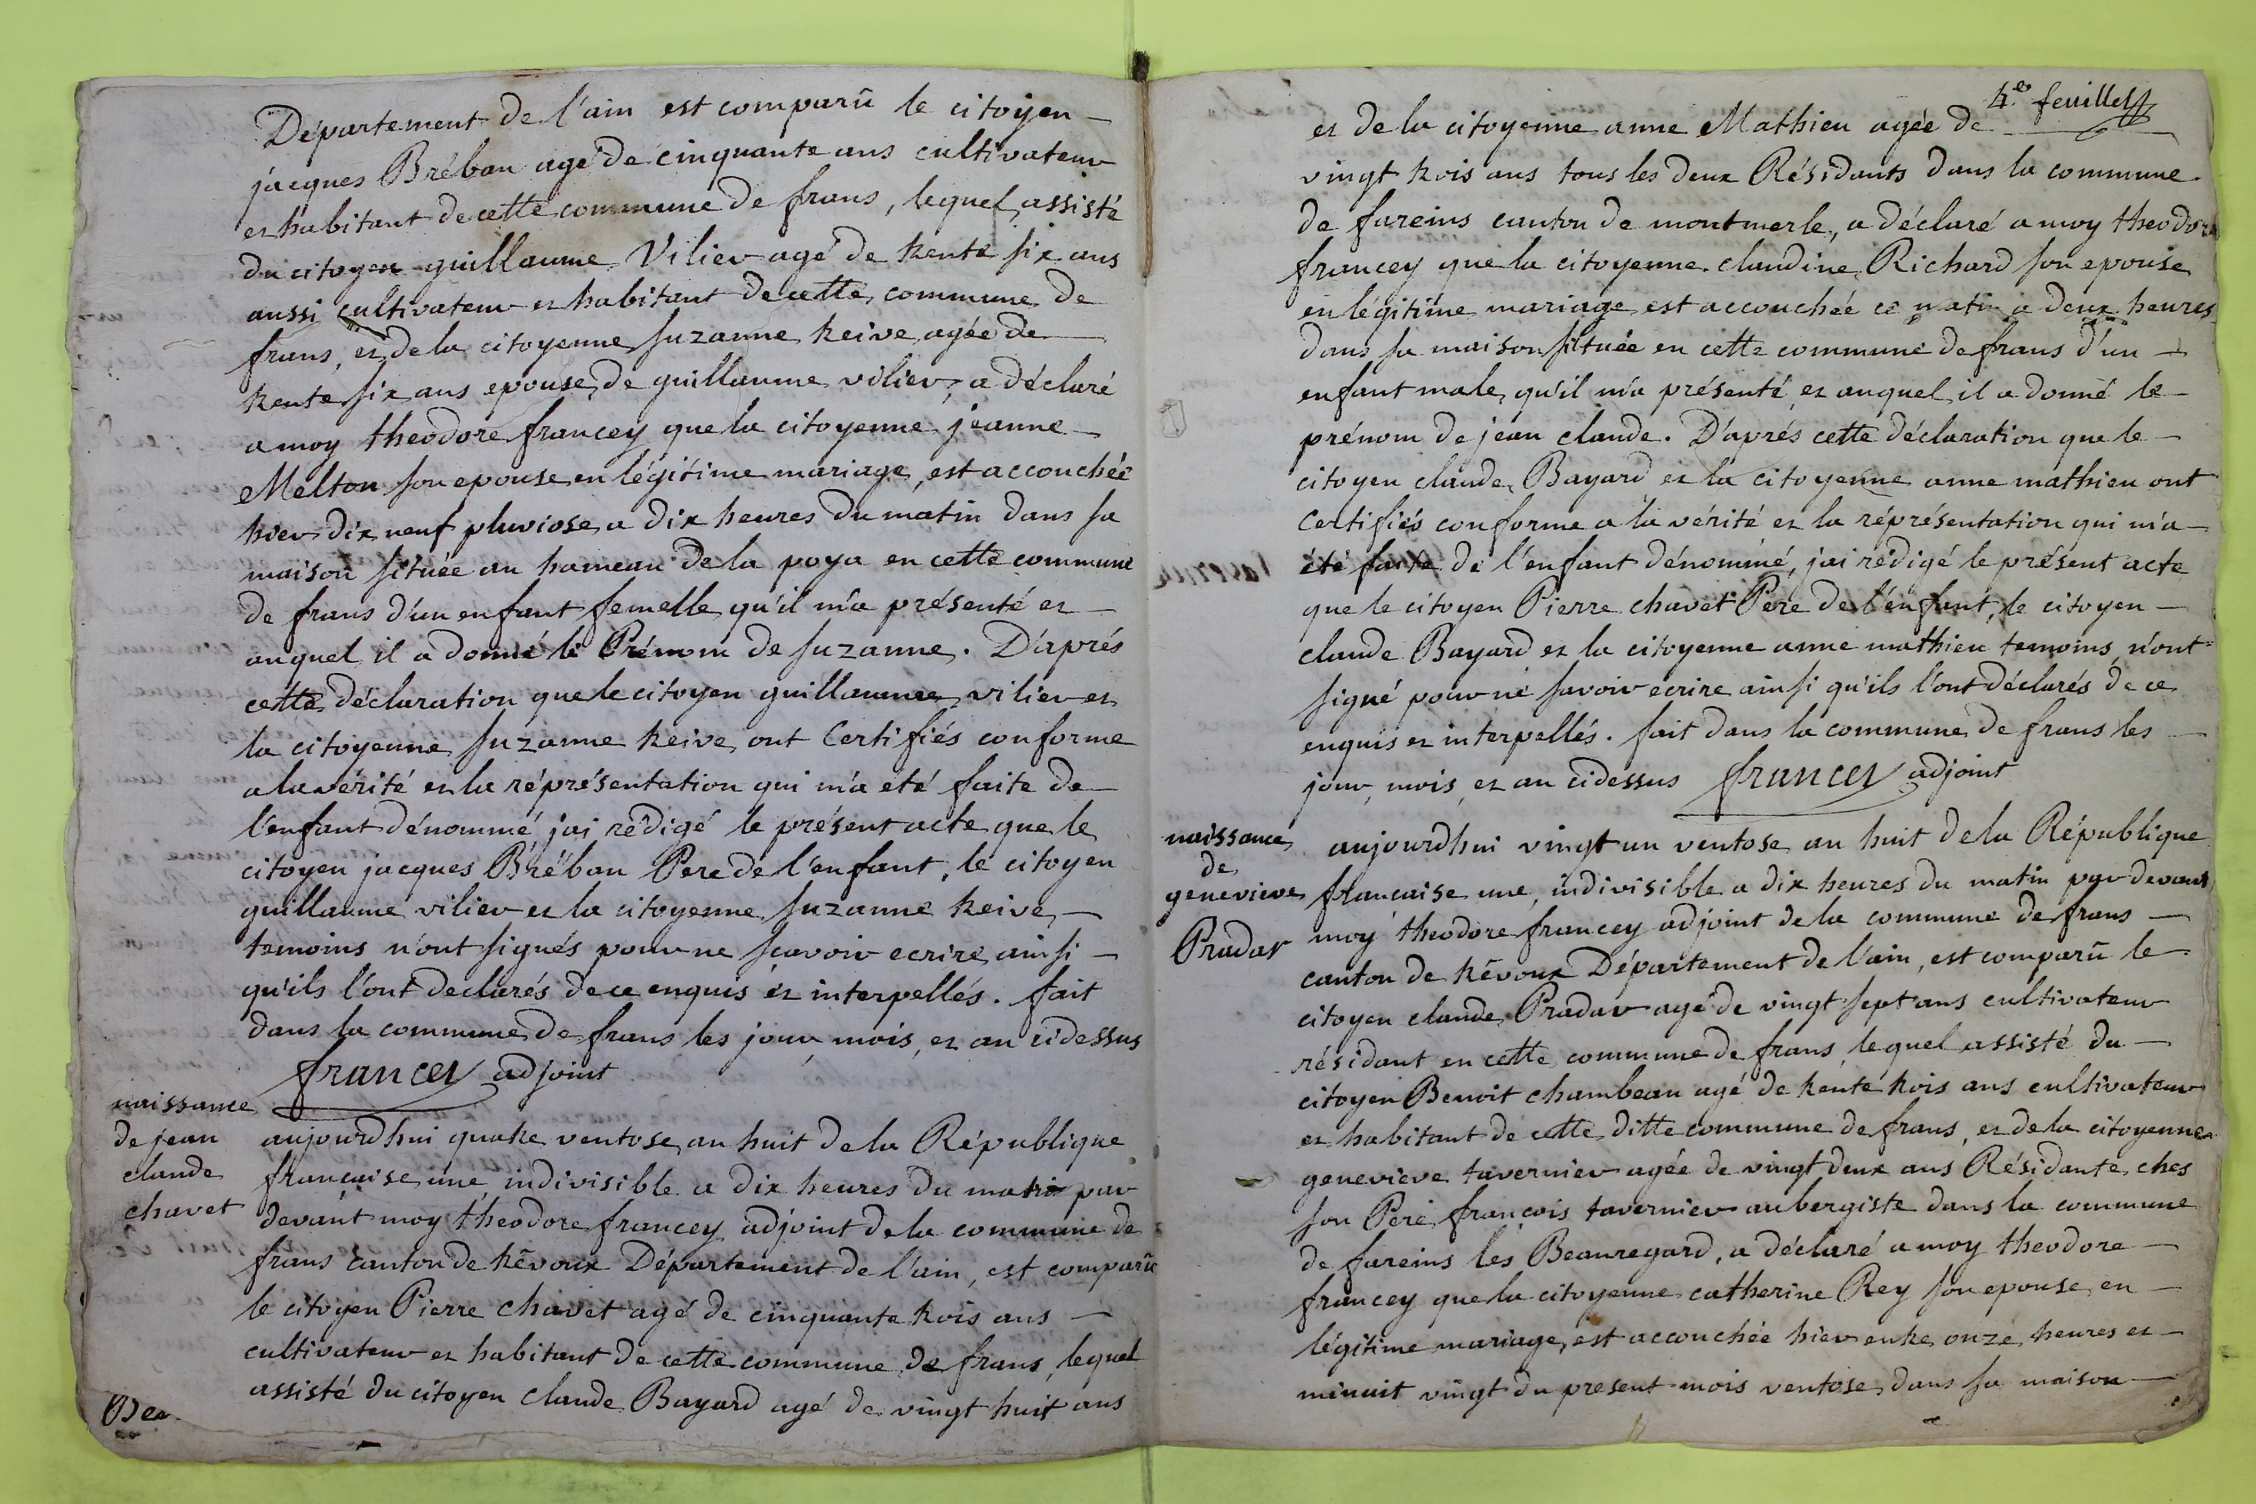 Département de l'ain est comparû le citoyen
jacques Bréban agé de cinquante ans cultivateur
et habitant de cette commune de frans, lequel assisté
du citoyen guillaume Vilier agé de trente six ans
aussi cultivateur et habitant de cette commune de
frans, et de la citoyenne suzanne treive agée de
trente six ans epouse de guillaume vilier, a déclaré
a moy theodore francey que la citoyenne jeanne
Melton son epouse en légitime mariage, est accouchée
hier dix neuf pluviose a dix heures du matin dans sa
maison située au hameau de la poya en cette commune
de frans d'un enfant femelle qu'il m'a présenté et
auquel il a donné le Prénom de suzanne. D'après
cette déclaration que le citoyen guillaume vilier et
la citoyenne suzanne treive ont Certifiés conforme
a la vérité et la réprésentation qui m'a eté faite de
l'enfant dénommé j'ai rédigé le présent acte que le
citoyen jacques Bréban Pere de l'enfant, le citoyen
guillaume vilier et la citoyenne suzanne treive
temoins n'ont signés pour ne sçavoir ecrire ainsi
qu'ils l'ont declarés de ce enquis et interpellés. fait
dans la commune de frans les jour, mois, et an cidessus
francey adjoint
naissance
de jean
claude
chavet
aujourdhui quatre ventose an huit de la République
francaise une indivisible a dix heures du matin par
devant moy theodore francey adjoint de la commune de
frans canton de trévoux Département de l'ain, est comparû
le citoyen Pierre chavet agé de cinquante trois ans
cultivateur et habitant de cette commune de frans, lequel
assisté du citoyen Claude Bayard agé de vingt huit ans
4e. feuillet
et de la citoyenne anne Mathieu agée de
vingt trois ans tous les deux Résidants dans la commune
de fareins canton de montmerle, a déclaré a moy theodore
francey que la citoyenne claudine Richard son epouse
en légitime mariage est accouchée ce matin a deux heures
dans sa maison située en cette commune de frans d'un
enfant male qu'il m'a présenté et auquel il a donné le
prénom de jean claude. D'aprés cette déclaration que le
citoyen claude Bayard et la citoyenne anne mathieu ont
Certifiés conforme a la vérité et la réprésentation qui m'a
été faite de l'enfant dénommé, j'ai rédigé le présent acte
que le citoyen Pierre chavet Pere de l'enfant, le citoyen
claude Bayard et la citoyenne anne mathieu temoins n'ont
signé pour ne savoir ecrire ainsi qu'ils l'ont déclarés de ce
enquis et interpellés. fait dans la commune de frans les
jour, mois, et an cidessus francey adjoint
naissance
de
genevieve
Pradar
aujourdhui vingt un ventose an huit de la République
francaise une, indivisible a dix heures du matin par devant
moy theodore francey adjoint de la commune de frans
canton de trévoux Département de l'ain, est comparû le
citoyen claude Pradar agé de vingt sept ans cultivateur
résidant en cette commune de frans lequel assisté du
citoyen Benoit chambeau agé de trente trois ans cultivateur
et habitant de cette ditte commune de frans, et de la citoyenne
genevieve tavernier agée de vingt deux ans Résidante ches
son Pere françois tavernier aubergiste dans la commune
de fareins les Beauregard, a déclaré a moy theodore
francey que la citoyenne catherine Rey son epouse en
légitime mariage, est accouchée hier entre onze heures et
minuit vingt du present mois ventose dans sa maison